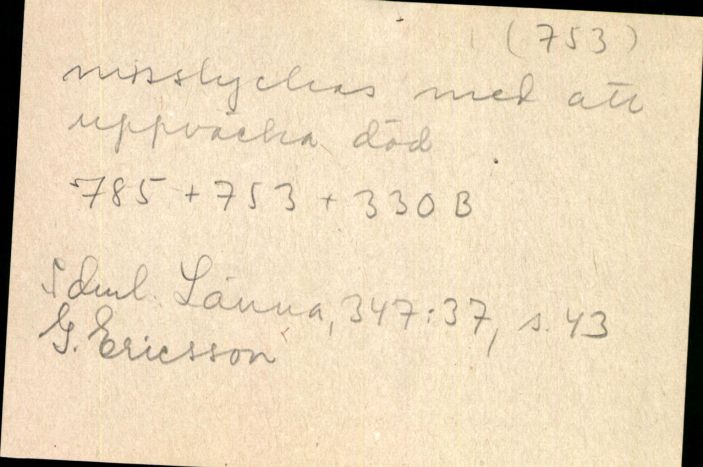 (753)
misslyckas med att
uppväcka död
785 + 753 + 330 B
Sdml. Länna, 347:37, s. 43
G. Ericsson